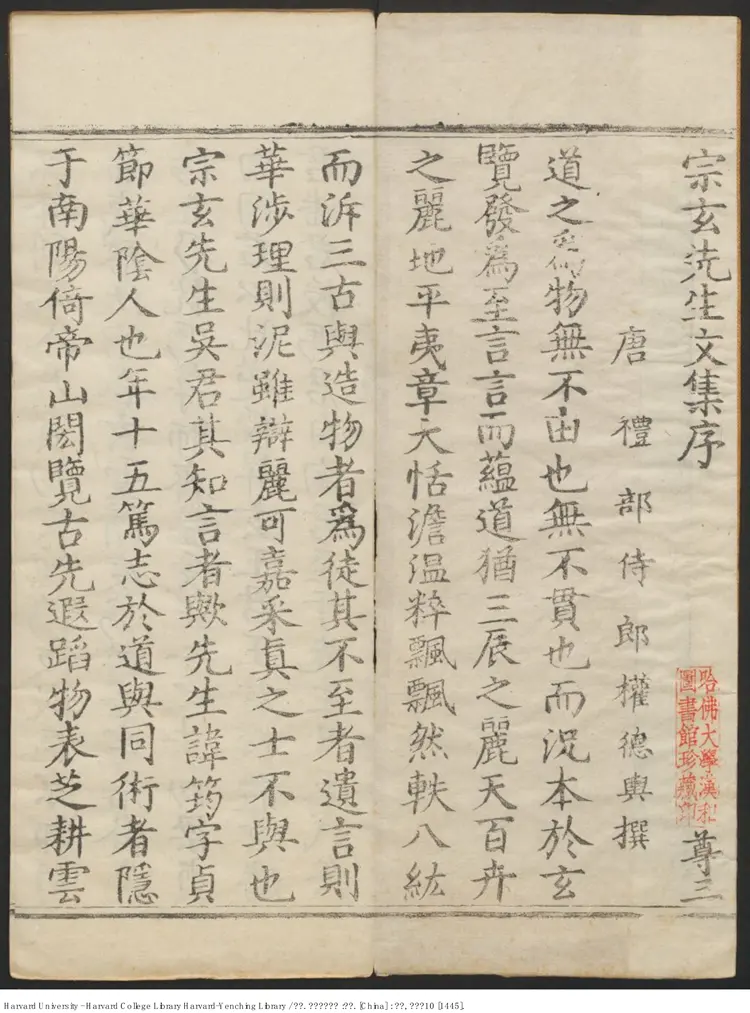 宗玄先生文集序
尊三
哈佛大學漢和
圖書館珍藏印
唐禮部侍郎權德輿撰
道之物無不由也無不貫也而況本於玄
覽發為至言言而蘊道猶三辰之麗天百卉
之麗地平夷章大恬澹溫粹飄飄然軼八紘
而泝三古與造物者為徒其不至者遺言則
華涉理則泥雖辯麗可嘉采真之士不與也
宗玄先生吳君其知言者歟先生諱筠字貞
節華陰人也年十五篤志於道與同術者隱
于南陽倚帝山閎覽古先遐蹈物表芝耕雲
Harvard University - Harvard College Library Harvard-Yenching Library / ??. ?????? :??. [China] : ??, ???10 [1445].